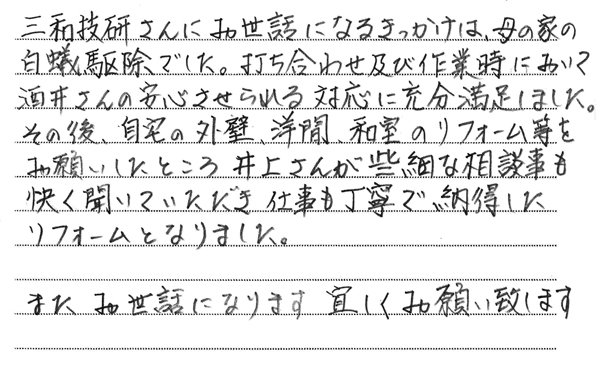 三和技研さんにお世話になるきっかけは、母の家の
白蟻駆除でした。打ち合わせ及び作業時において
酒井さんの安心させられる対応に充分満足しました。
その後、自宅の外壁、洋間、和室のリフォーム等を
お願いしたところ 井上さんが些細な相談事も
快く聞いていただき 仕事も丁寧で納得した
リフォームとなりました。
また お世話になります 宜しくお願い致します